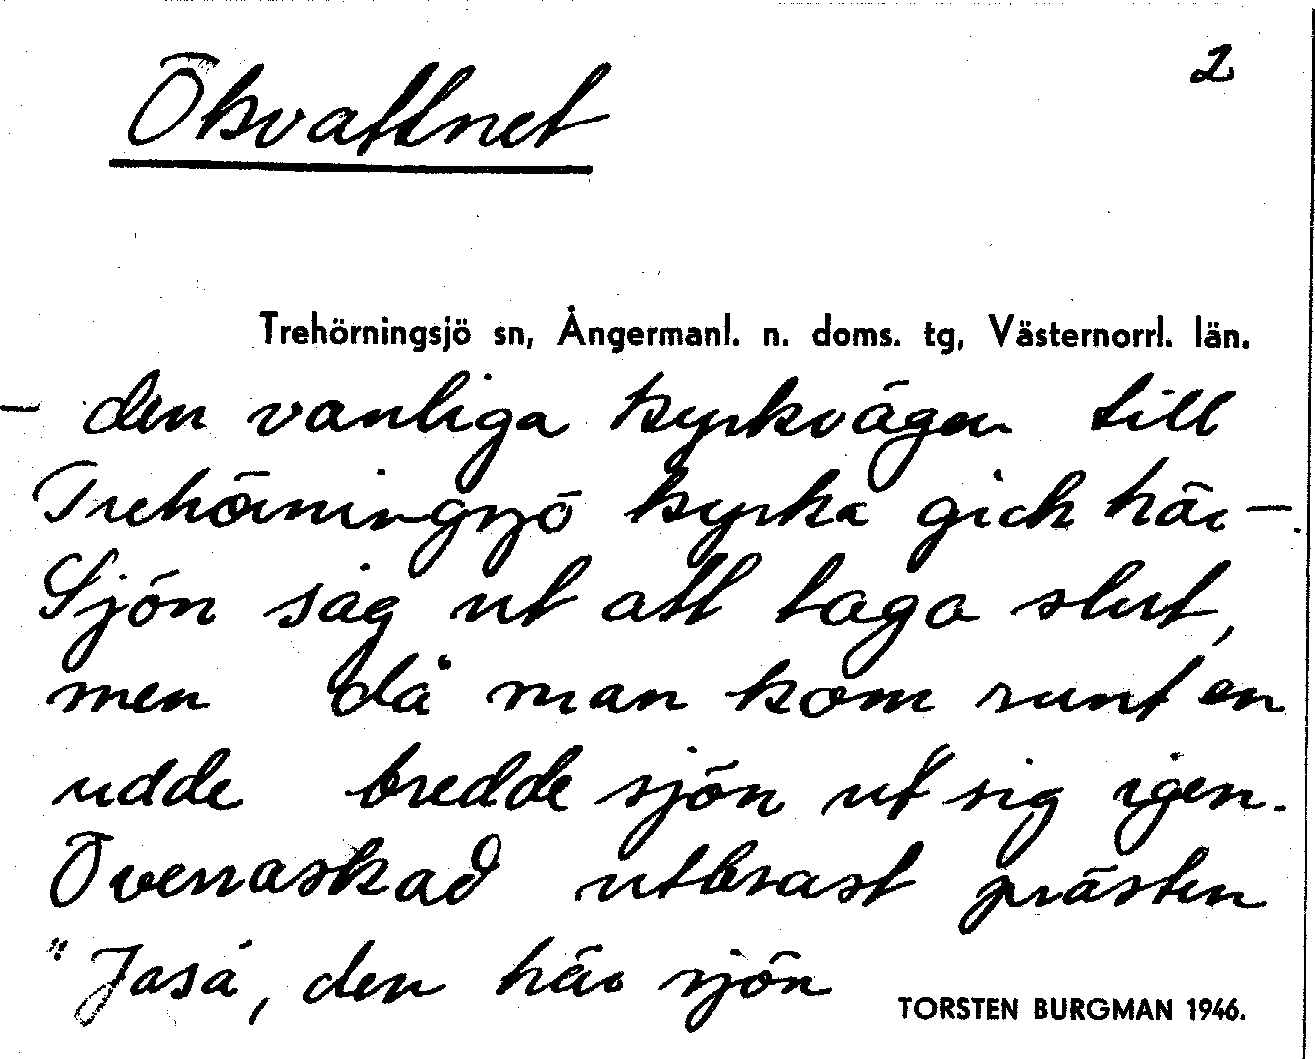 Ökvattnet
2
Trehörningsjö sn, Ångermanl. n. doms. tg, Västernorrl. län.
– den vanliga kyrkvägen till
Trehörningsjö kyrka gick här –.
Sjön såg ut att taga slut,
men då man kom runt en
udde bredde sjön ut sig igen.
Överraskad utbrast prästen
"Jaså, den här sjön
TORSTEN BURGMAN 1946.